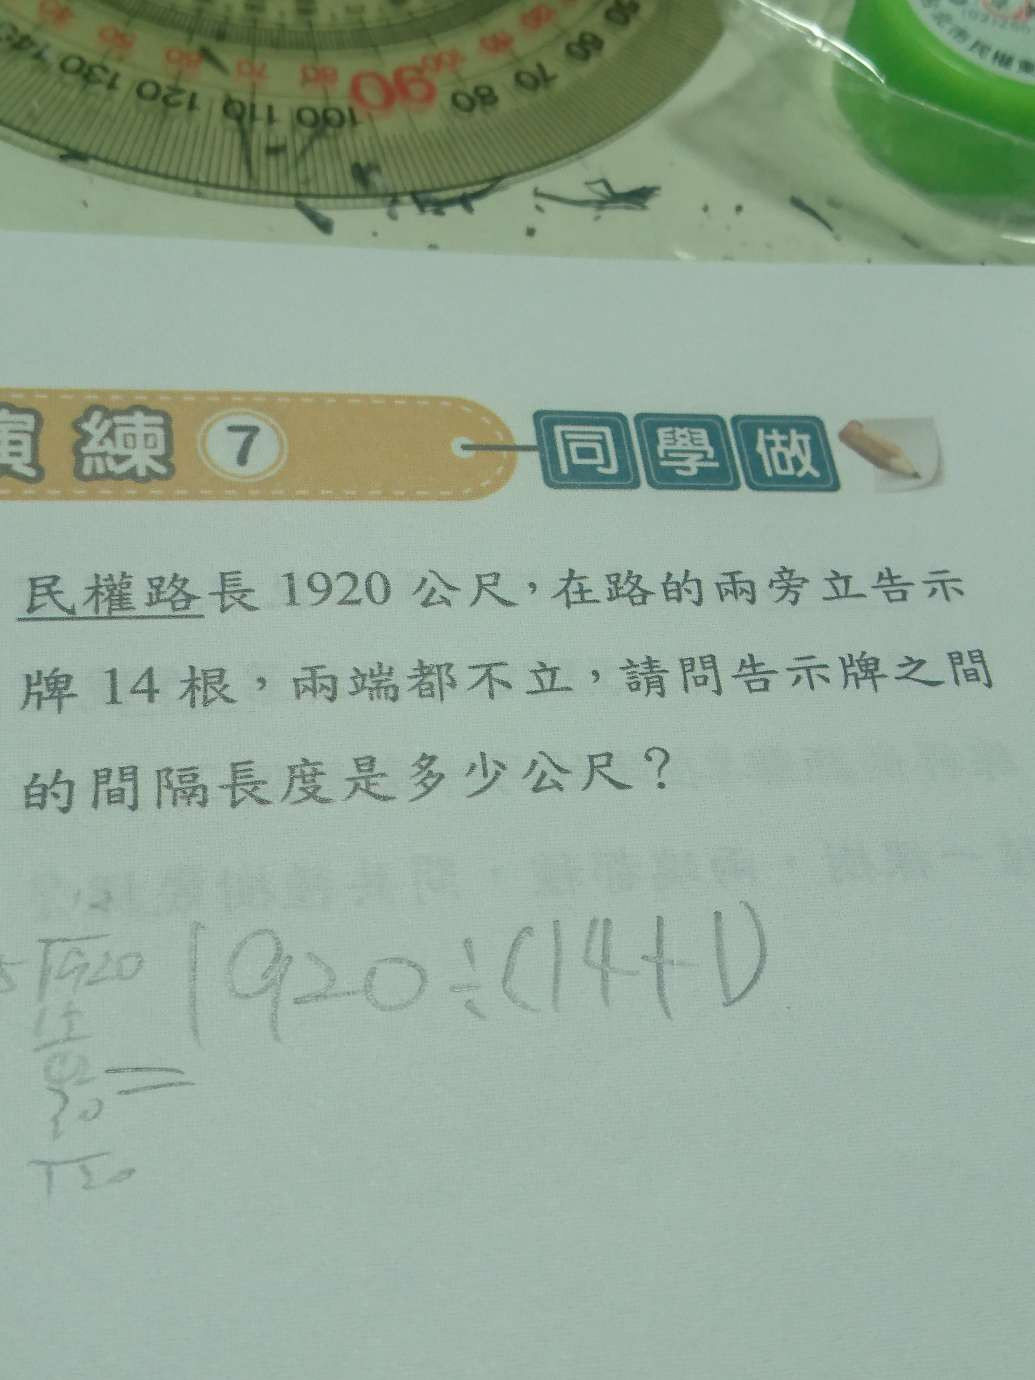 130 120 110 100 90 80 70 60 50
80
市民權東
演練 7 同學做
民權路長 1920 公尺，在路的兩旁立告示
牌 14 根，兩端都不立，請問告示牌之間
的間隔長度是多少公尺？
1920÷(14+1)
1920
15
42
30
120
=